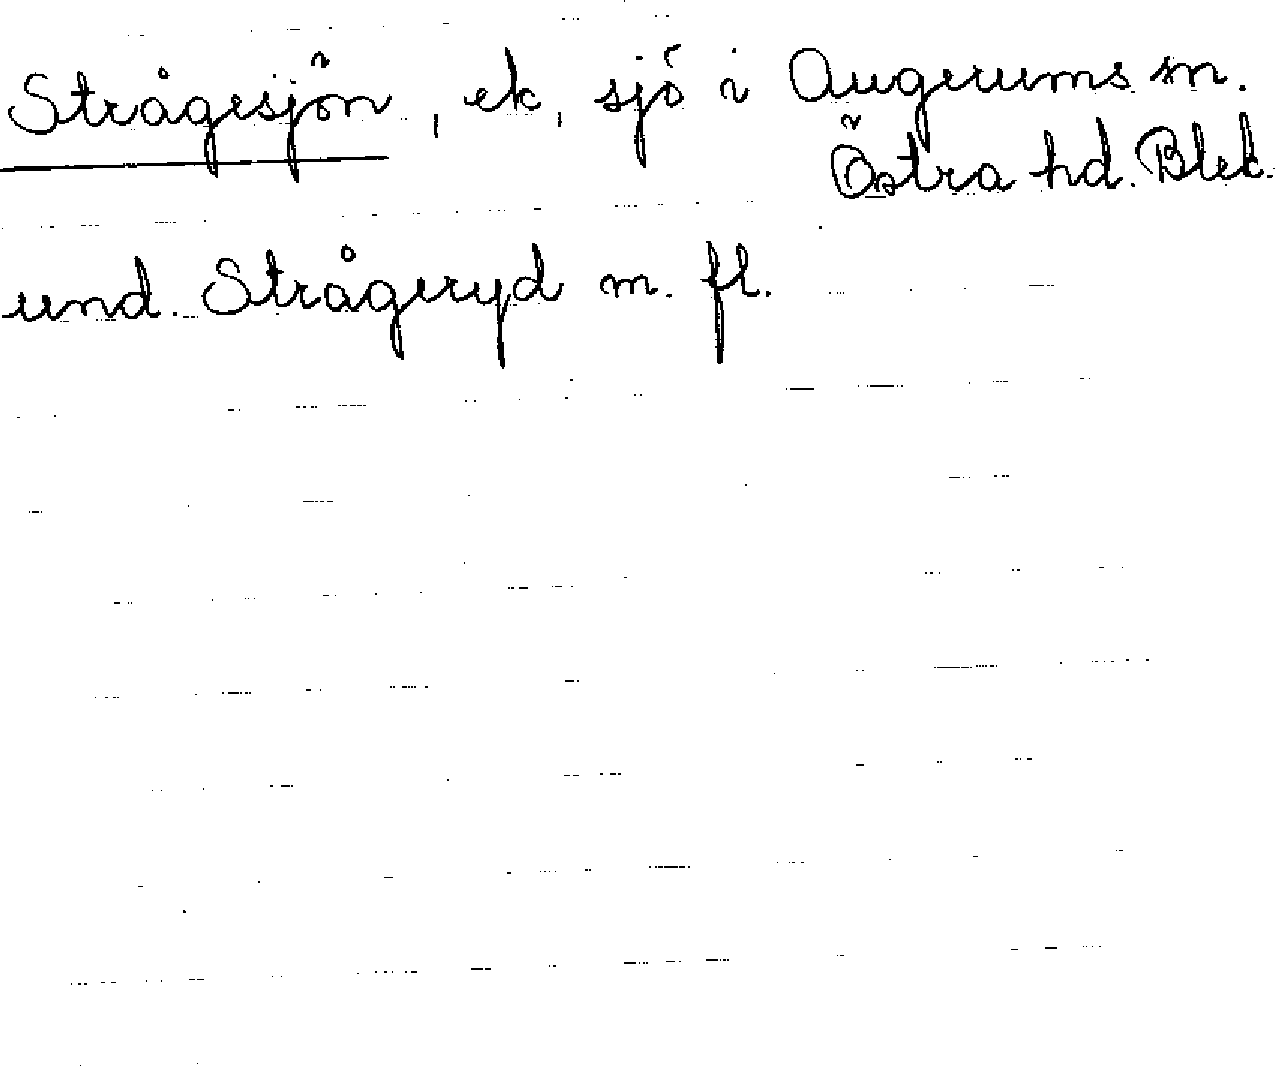 Strågesjön, ek, sjö i Augerums sn.
Östra hd. Blek.
und. Strågeryd m. fl.